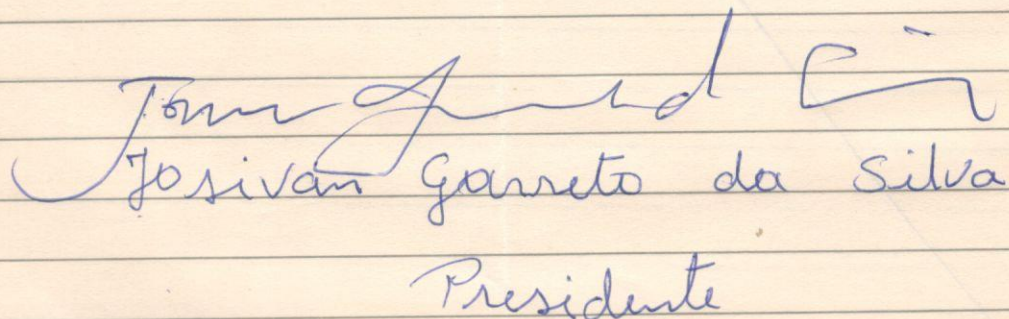 Josivan Garreto da Silva
Presidente